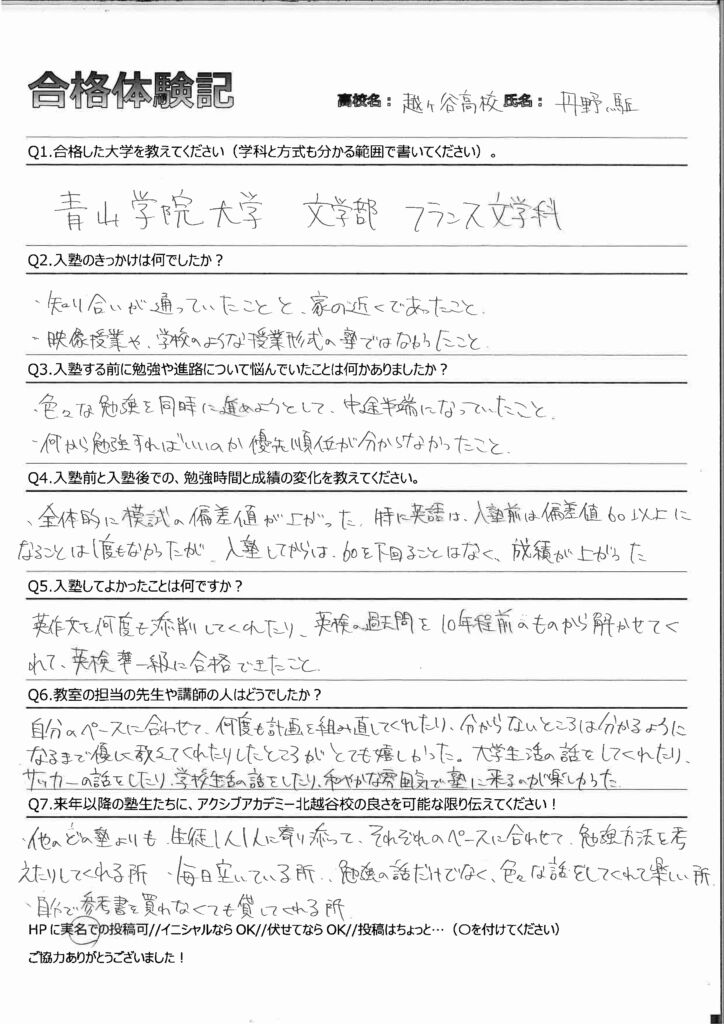 合格体験記
高校名： 越ヶ谷高校 氏名： 丹野 駈
Q1.合格した大学を教えてください（学科と方式も分かる範囲で書いてください）。
青山学院大学 文学部 フランス文学科
Q2.入塾のきっかけは何でしたか？
・知り合いが通っていたことと、家の近くであったこと。
・映像授業や、学校のような授業形式の塾ではなかったこと。
Q3.入塾する前に勉強や進路について悩んでいたことは何かありましたか？
・色々な勉強を同時に進めようとして、中途半端になっていたこと。
・何から勉強すればいいのか優先順位が分からなかったこと。
Q4.入塾前と入塾後での、勉強時間と成績の変化を教えてください。
・全体的に模試の偏差値が上がった。特に英語は、入塾前は偏差値60以上に
なることは1度もなかったが、入塾してからは、60を下回ることはなく、成績が上がった
Q5.入塾してよかったことは何ですか？
英作文を何度も添削してくれたり、英検の過去問を10年程前のものから解かせてく
れて、英検準一級に合格できたこと。
Q6.教室の担当の先生や講師の人はどうでしたか？
自分のペースに合わせて、何度も計画を組み直してくれたり、分からないところは分かるように
なるまで優しく教えてくれたりしたところがとても嬉しかった。大学生活の話をしてくれたり、
サッカーの話をしたり、学校生活の話をしたり、和やかな雰囲気で塾に来るのが楽しかった。
Q7.来年以降の塾生たちに、アクシブアカデミー北越谷校の良さを可能な限り伝えてください！
・他のどの塾よりも、生徒1人1人に寄り添って、それぞれのペースに合わせて、勉強方法を考
えたりしてくれる所 ・毎日空いている所 ・勉強の話だけでなく、色々な話をしてくれて楽しい所
・自分で参考書を買わなくても貸してくれる所
HPに実名での投稿可//イニシャルならOK//伏せてならOK//投稿はちょっと…（〇を付けてください）
ご協力ありがとうございました！